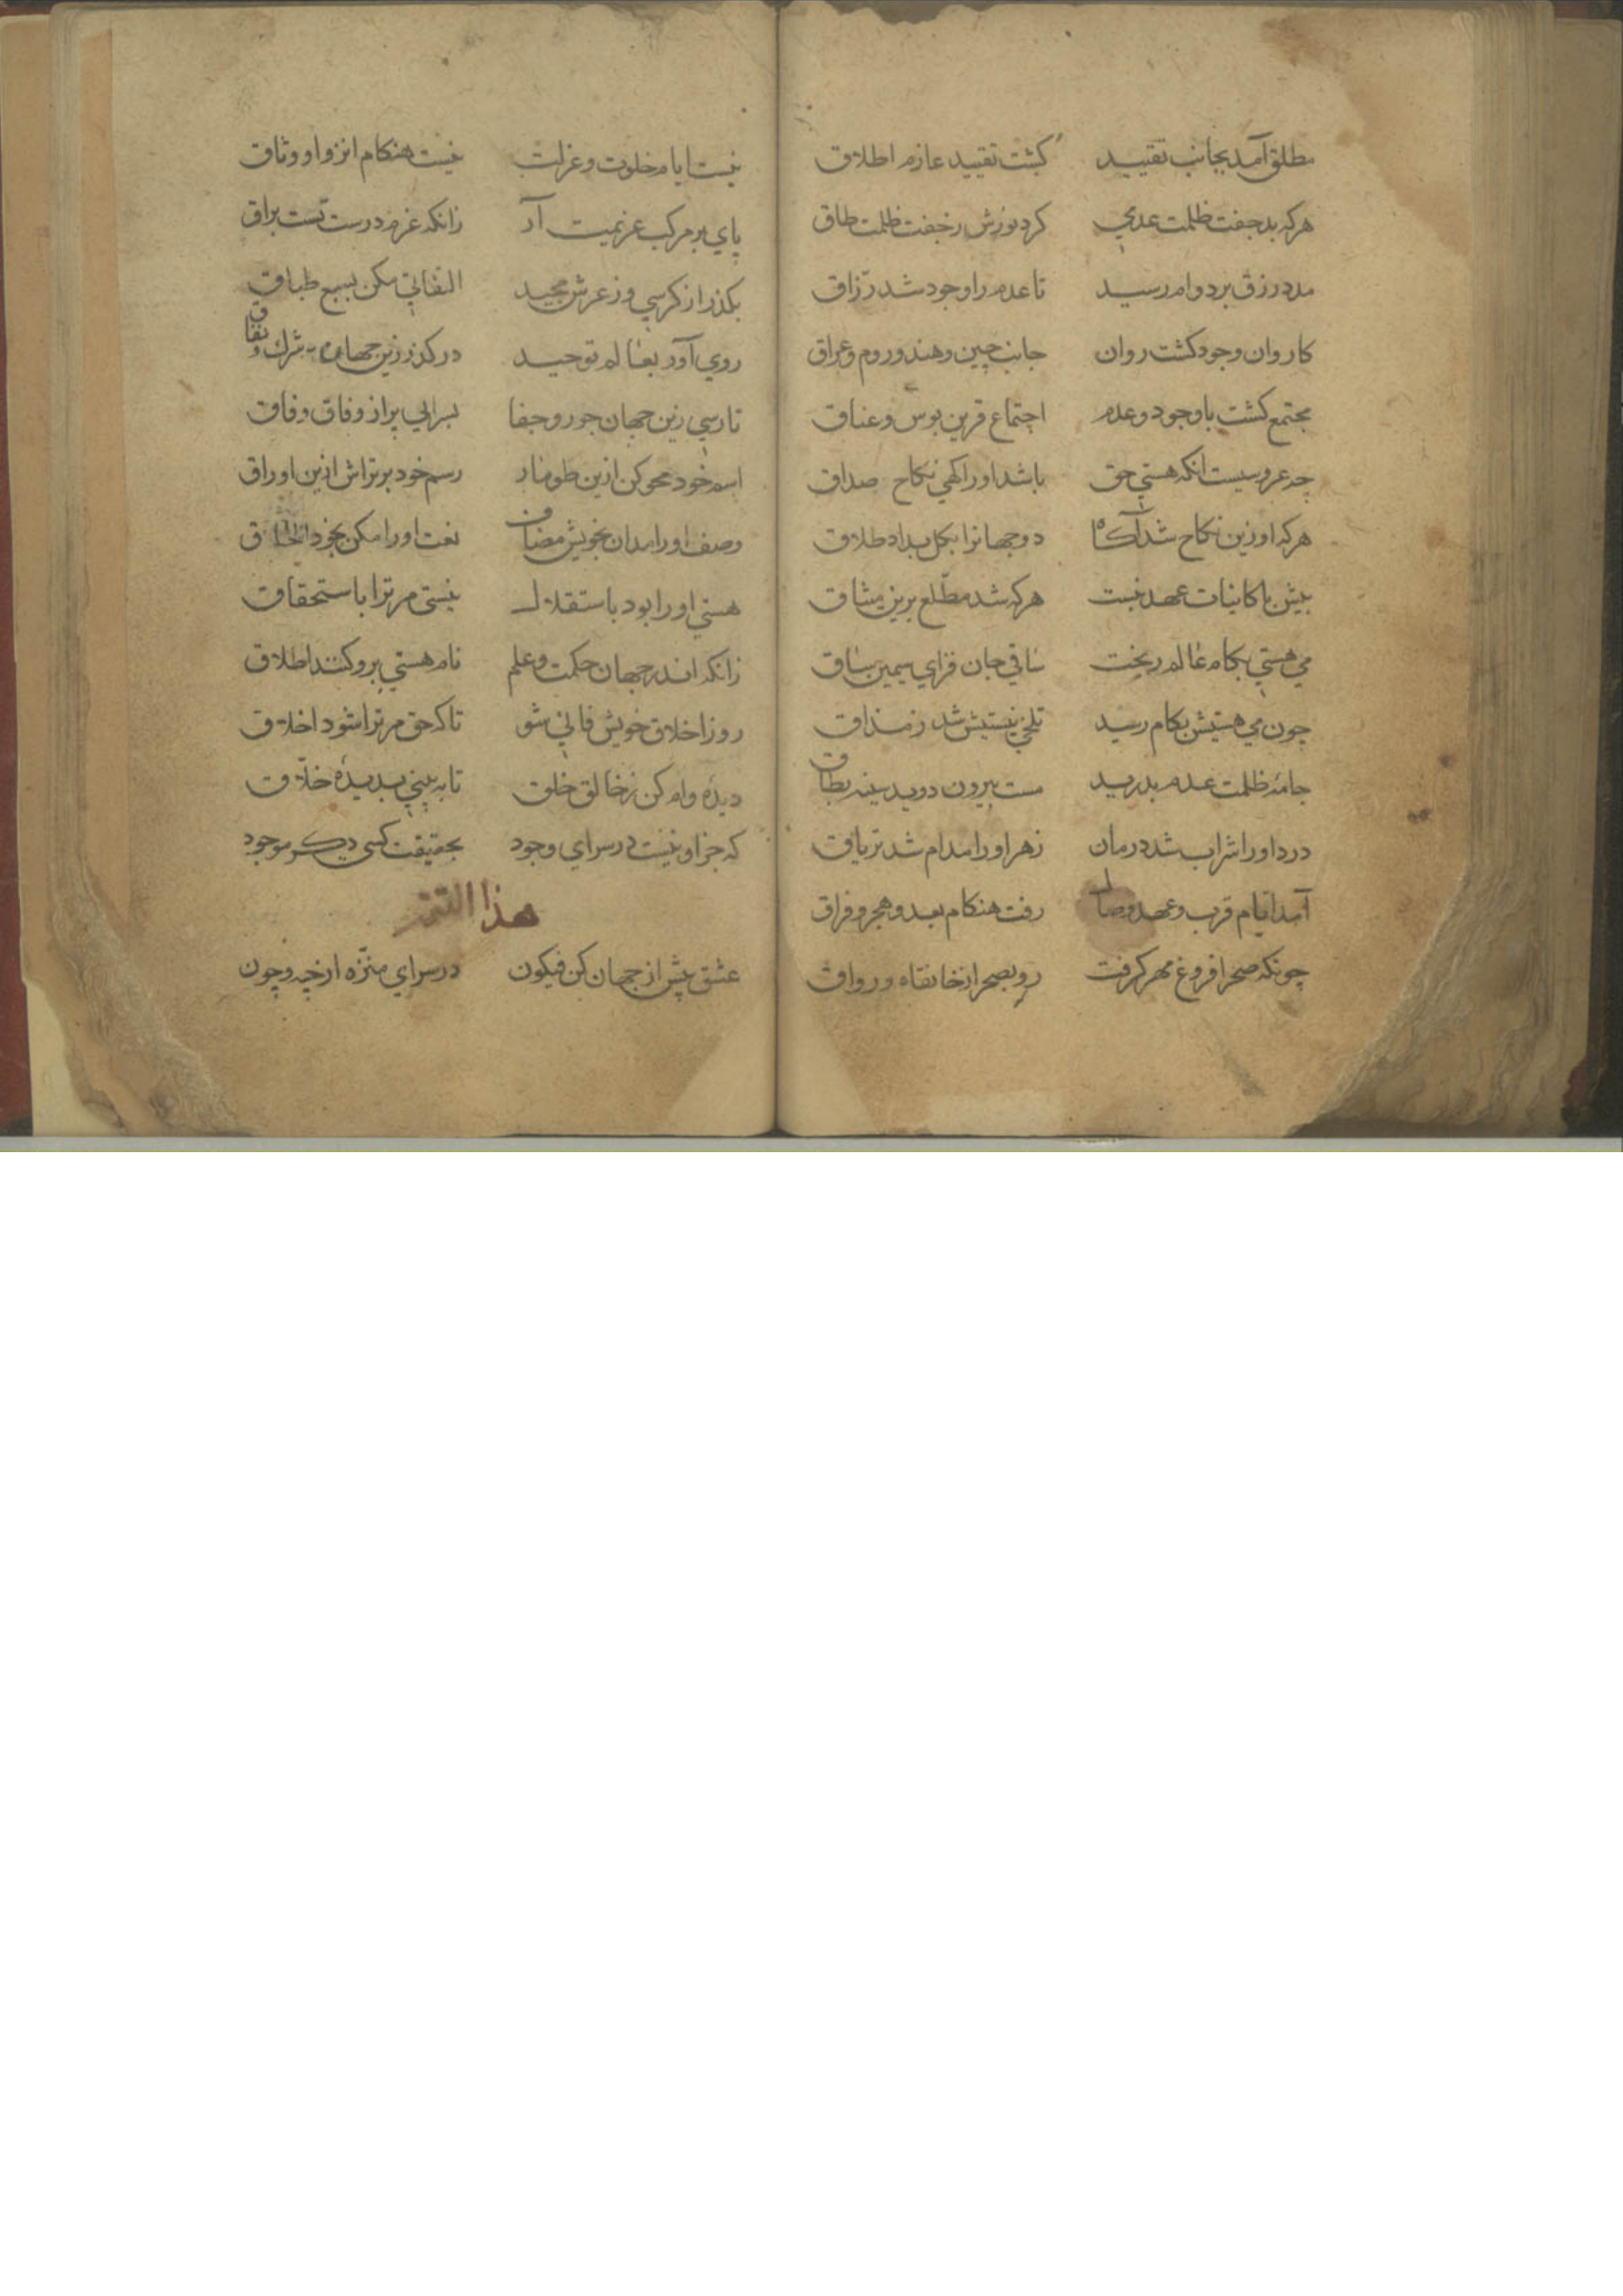 مطلق آمد بجانب تقیید کشت تقیید عازم اطلاق
هرکه بد جفت ظلمت عدمی کرد نورش ز جفت ظلمت طاق
مدد رزق بر دوام رسید تا عدم را وجود شد رزّاق
کاروان وجود کشت روان جانب چین و هند و روم و عراق
مجتمع کشت با وجود و عدم اجتماع قرین بوس و عناق
چه عروسیست انکه هستی حق باشد اورا کهی نکاح صداق
هرکه او زین نکاح شد آکاه دو جهانرا بکل بداد طلاق
بیش با کاینات عهد نبست هرکه شد مطّلع برین میثاق
می هستی بکام عالم ریخت ساقی جان فزای سیمین ساق
چون می هستیش بکام رسید تلخی نیستیش شد ز مذاق
جامهٔ ظلمت عدم بدرید مست بیرون دوید بسته نطاق
درد اورا شراب شد درمان زهر اورا مدام شد تریاق
آمد ایّام قرب و عهد وصال رفت هنکام بعد و هجر و فراق
چونکه صحرا فروغ مهر کرفت رو بصحرا از خانقاه و رواق
نیست ایام خلوت و عزلت نیست هنکام انزوا و وثاق
پای بر مرکب عزیمت آر زانکه عزم درست تست براق
بکذر از کرسی و ز عرش مجید التفاتی مکن بسبع طباق
روی آور بعالم توحید درکذر زین جهان شرك و نفاق
تا رسی زین جهان جور و جفا بسرایی پر از وفاق وفاق
اسم خود محو کن ازین طومار رسم خود برتراش ازین اوراق
وصف اورا مدان بخویش مضاف نعت اورا مکن بخود الحاق
هستی اورا بود باستقلال نیستی مر ترا باستحقاق
زانکه اندر جهان حکمت و علم نام هستی برو کنند اطلاق
رو ز اخلاق خویش فانی شو تا که حق مر ترا شود اخلاق
دیدهٔ وام کن ز خالق خلق تا به بینی بدیدهٔ خلّاق
که جز او نیست در سرای وجود بحقیقت کسی دیکر موجود
هذا
عشق پیش از جهان کن فیکون در سرای منزّه از چه و چون